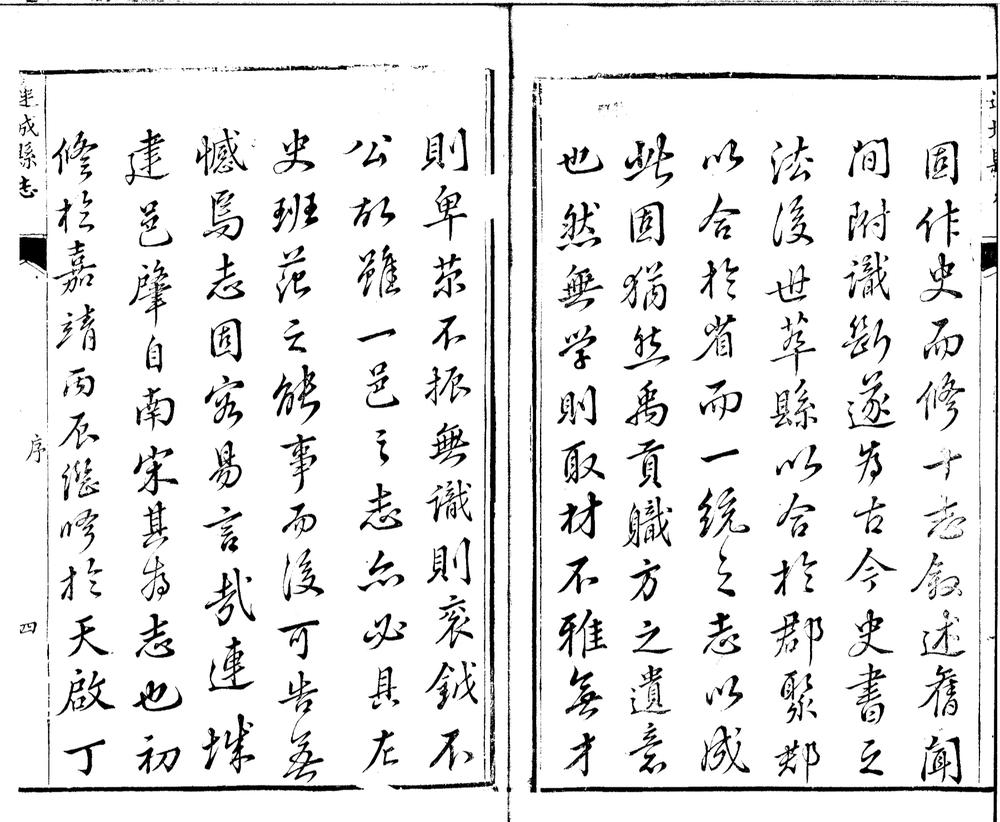 固作史而修十志敘述舊聞
間附識斷遂為古今史書之
法後世萃縣以合於郡聚郡
以合於省而一統之志以成
此固猶然禹貢職方之遺意
也然無学則取材不雅無才
則卑荣不振無識則衮鉞不
公故雖一邑之志亦必具左
史班范之能事而後可告無
憾焉志固容易言哉連城
建邑肇自南宋其為志也初
修於嘉靖丙辰繼修於天啟丁
連城縣志
序
四